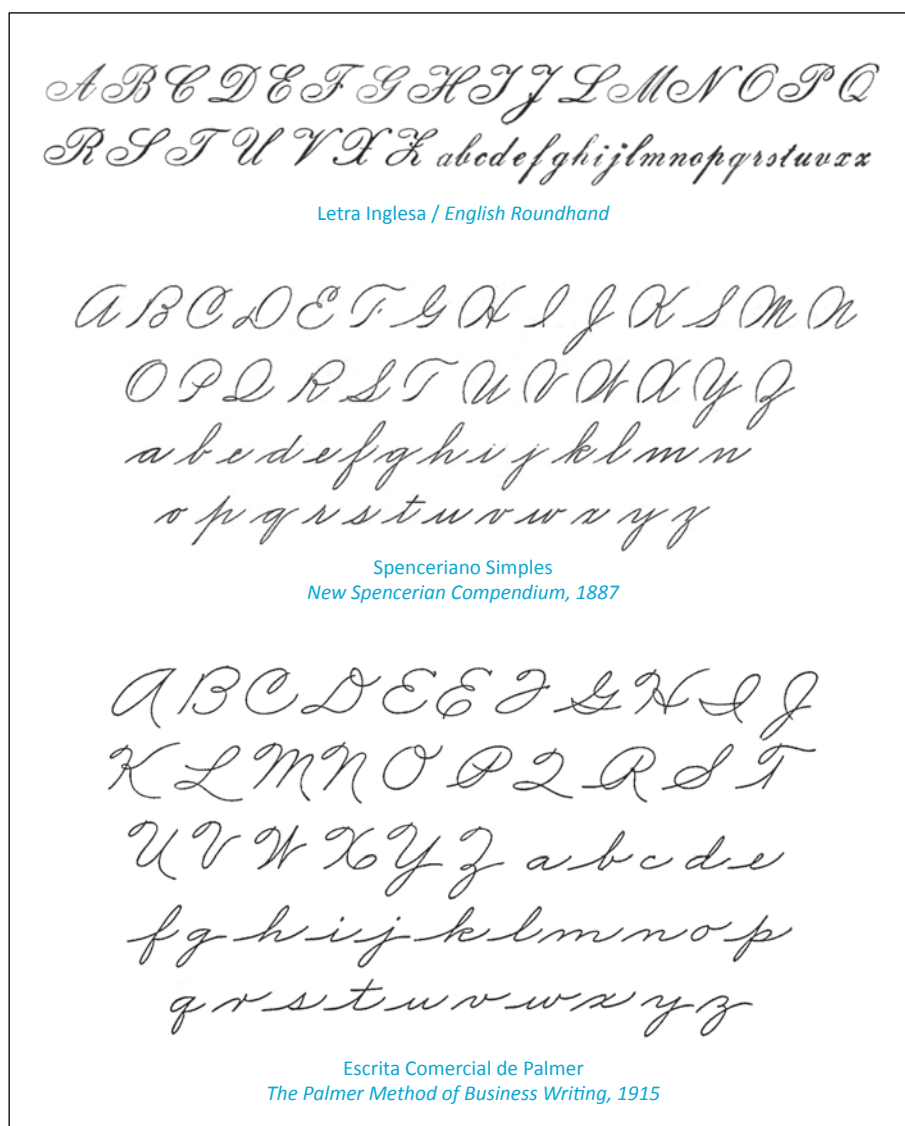 A B C D E F G H I J L M N O P Q
R S T U V X Z a b c d e f g h i j l m n o p q r s t u v x z
Letra Inglesa / English Roundhand
A B C D E F G H I J K L M N
O P Q R S T U V W X Y Z
a b c d e f g h i j k l m n
o p q r s t u v w x y z
Spenceriano Simples
New Spencerian Compendium, 1887
A B C D E E F G H I J
K L M N O P Q R S T
U V W X Y Z a b c d e
f g h i j k l m n o p
q r s t u v w x y z
Escrita Comercial de Palmer
The Palmer Method of Business Writing, 1915